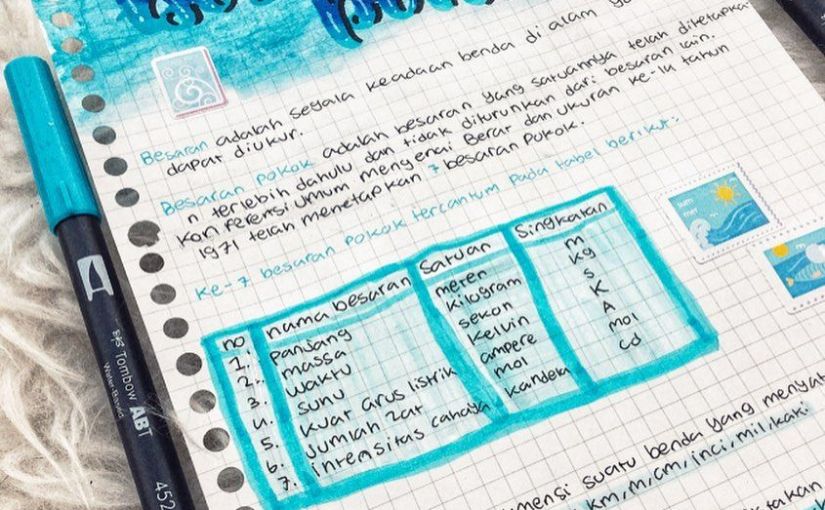 Besaran adalah segala keadaan benda di alam ya
dapat diukur.
Besaran pokok adalah besaran yang satuannya telah ditetapka-
n terlebih dahulu dan tidak diturunkan dari besaran lain.
Konferensi Umum mengenai Berat dan Ukuran ke-14 tahun
1971 telah menetapkan 7 besaran pokok.
Ke-7 besaran pokok tercantum pada tabel berikut:
no nama besaran satuan singkatan
1. panjang meter m
2. massa kilogram kg
3. waktu sekon s
4. suhu kelvin K
5. kuat arus listrik ampere A
6. jumlah zat mol mol
7. intensitas cahaya kandela cd
mensi suatu benda yang menyat
km, m, cm, inci, mil, kaki.
takan
sum
mer
Tombow ABT
Water-Based
452